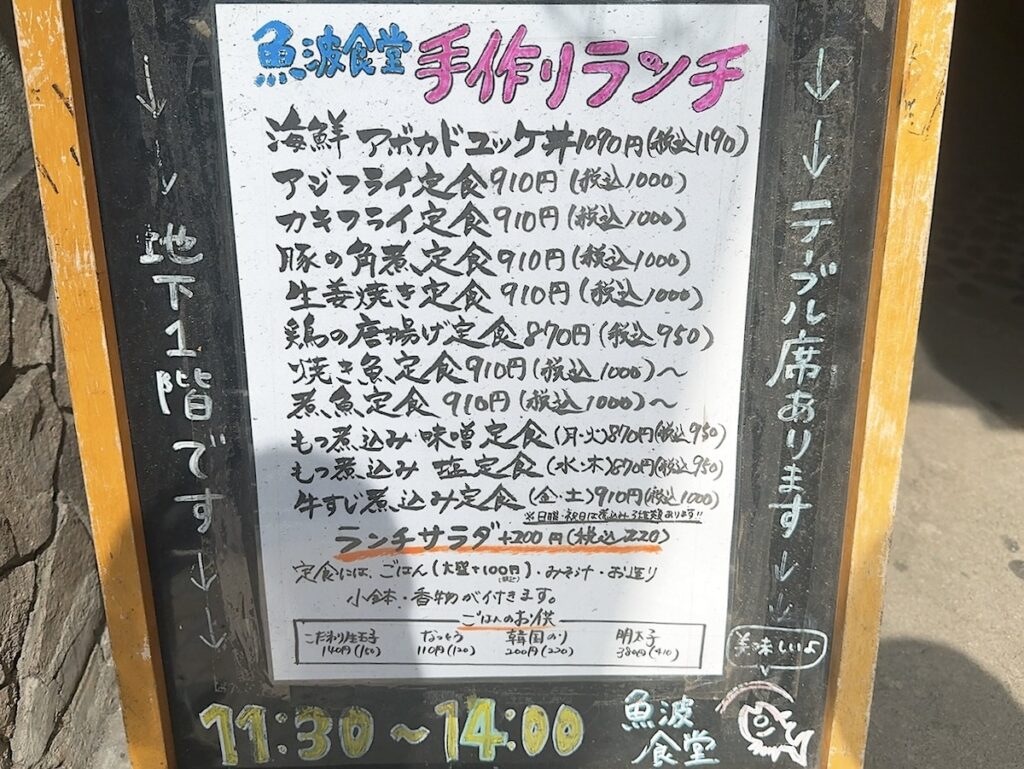 魚波食堂 手作りランチ
海鮮 アボカドユッケ丼1090円(税込1190)
アジフライ定食910円(税込1000)
カキフライ定食910円(税込1000)
豚の角煮定食910円(税込1000)
生姜焼き定食910円(税込1000)
鶏の唐揚げ定食870円(税込950)
焼き魚定食910円(税込1000)〜
煮魚定食910円(税込1000)〜
もつ煮込み味噌定食(月・火)870円(税込950)
もつ煮込み塩定食(水・木)870円(税込950)
牛すじ煮込み定食(金・土)910円(税込1000)
※日曜・祝日は煮込み3種類あります!!
ランチサラダ+200円(税込220)
定食には、ごはん(大盛+100円(税込))・みそ汁・お造り
小鉢・香物が付きます。
ごはんのお供
こだわり生玉子 なっとう 韓国のり 明太子
140円(150) 110円(120) 200円(220) 380円(410)
↓↓地下1階です↓↓
↓↓テーブル席あります↓↓
美味しいよ
11:30〜14:00
魚波
食堂